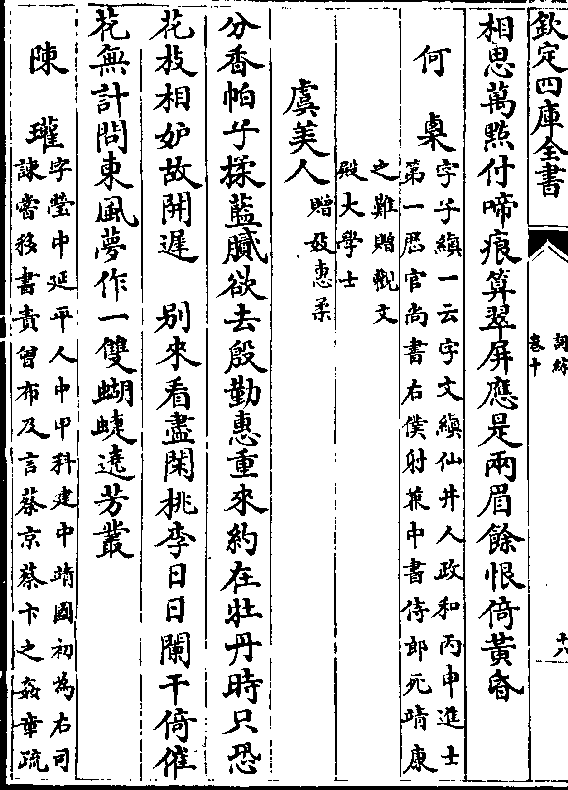 欽定四庫全書
詞綜
卷十
十八
相思萬㸃付啼痕算翠屏應是兩眉餘恨倚黃昏
何㮚
字子縝一云字文縝仙井人政和丙申進士
第一歴官尚書右僕射兼中書侍郎死靖康
之難贈觀文
殿大學士
虞美人
贈妓惠柔
分香帕子揉藍膩欲去殷勤惠重來約在牡丹時只恐
花枝相妒故開遲　別來看盡閑桃李日日闌干倚催
花無計問東風夢作一雙蝴蜨遶芳叢
陳瓘
字瑩中延平人中甲科建中靖國初為右司
諫嘗移書責曾布及言蔡京蔡卞之姦章疏